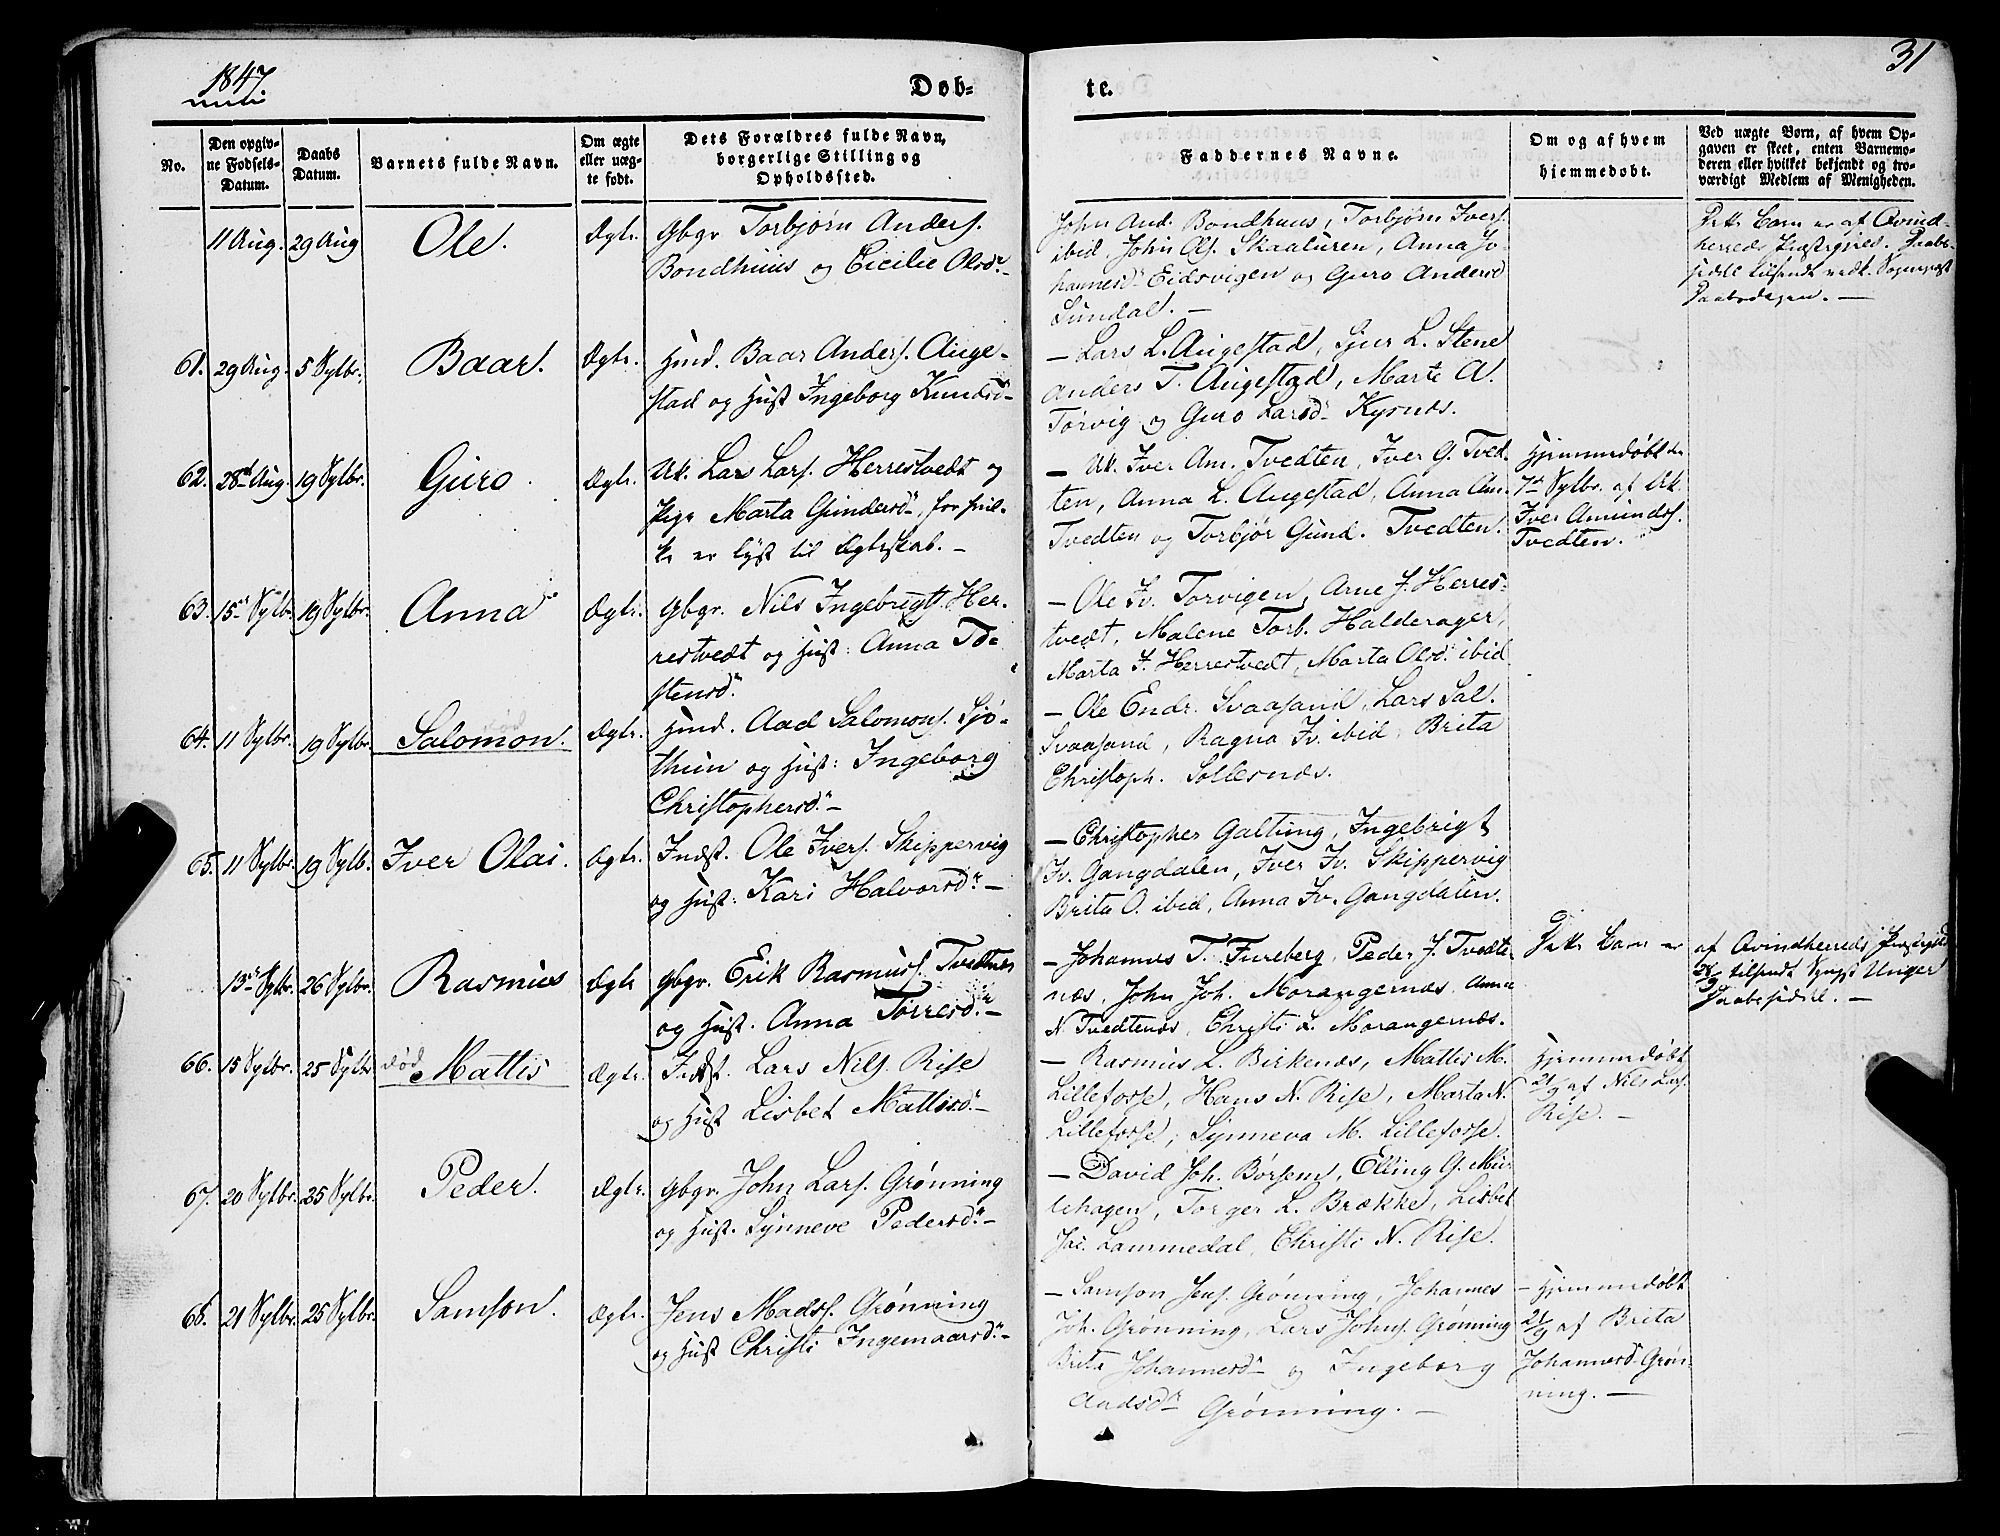 1847.
31
Døb-
te.
No.
Den opgiv-
ne Fødsels-
Datum.
Daabs
Datum.
Barnets fulde Navn.
Om ægte
eller uæg-
te født.
Dets Forældres fulde Navn,
borgerlige Stilling og
Opholdssted.
Faddernes Navne.
Om og af hvem
hjemmedøbt.
Ved uægte Børn, af hvem Op-
gaven er skeet, enten Barnemo-
deren eller hvilket bekjendt og tro-
værdigt Medlem af Menigheden.
11 Aug. 29 Aug Ole. Ægte.
Gbgr Torbjørn Anders.
Bondhuus og Cicilie Olsd.
John And. Bondhuus, Torbjørn Ivers.
ibid, John Ols. Skaaluren, Anna Jo-
hannesd Eidsvigen og Guro Andersd
Sundal. —
Dette Barn er af Qvind-
herreds Præstegjeld. Daabs-
seddel tilsendt vedk. Sognepræst
Daabsdagen. —
61. 29 Aug. 5 Sptbr. Baar. Ægte.
Huusmd. Baar Anders. Auge-
stad og Hust Ingeborg Knudsd
— Lars L. Augestad, Sjur L. Stene
Anders T. Augestad, Marte A.
Torvig og Guro Larsd Kysnes.
62. 28de Aug. 19 Sptbr. Guro. Ægte.
Uk. Lars Lars. Herrestvedt og
Pige Marta Gundersd, for hvil-
ke er lyst til Ægteskab. —
— Uk. Iver Am. Tvedten, Iver G. Tved-
ten, Anna L. Augestad, Anna Am.
Tvedten og Torbjør Gund. Tvedten.
Hjemmedøbt den
7de Sptbr. af Uk.
Iver Amunds.
Tvedten.
63. 15de Sptbr 19 Sptbr. Anna Ægte.
Gbgr. Nils Ingebrigts. Her-
restvedt og Hust: Anna To-
stensd.
— Ole Iv. Torvigen, Arne J. Herres-
tvedt, Malene Torb. Halderager,
Marta J. Herrestvedt, Marta Olsd. ibid
64. 11 Sptbr. 19 Sptbr. Salomon. død Ægte.
Huusmd. Aad Salomons. Sjø-
thun og Hust: Ingeborg
Christophersd. —
— Ole Endr. Svaasand, Lars Sal.
Svaasand, Ragna Iv. ibid, Brita
Christoph. Sollesnæs.
65. 11 Sptbr. 19 Sptb. Iver Olai. Ægte.
Indst. Ole Ivers. Skippervig
og Hust: Kari Halvorsd. —
— Christopher Galtung, Ingebrigt
Iv. Gangdalen, Iver Iv. Skippervig
Brita O. ibid, Anna Iv. Gangdalen.
13de Sptbr. 26 Sptbr. Rasmus Ægte
Gbgr. Erik Rasmuss. Tvedtnes
og Hust. Anna Torresd. —
— Johannes T. Fureberg, Peder J. Tvedte-
næs, John Joh. Morangernæs. Anna
N Tvedtenæs, Christi L. Morangernæs.
Dette Barn er
af Qvindherreds Præstegjeld
28/9 tilsendt Sgnpst Unger
Daabsseddel. —
66. 15 Sptbr. 25 Sptbr død Mattis Ægte.
Indst. Lars Nils. Rise
og Hust Lisbet Mattisd. —
— Rasmus L. Birkenæs, Mattis M.
Lillefosse, Hans N. Rise, Marta N.
Lillefosse, Synneva M. Lillefosse.
Hjemmedøbt
21/9 af Nils Lars.
Rise. —
67. 20 Sptbr. 25 Sptbr. Peder. Ægte.
Gbgr. John Lars. Grønning
og Hust. Synneve Pedersd. —
— David Joh. Børsem, Elling G. Mu-
lehagen, Torger L. Brække, Lisbet
Jac. Lammedal, Christi N. Rise.
68. 21 Sptbr. 25 Sptbr. Samson. Ægte.
Jens Madss. Grønning
og Hust Christi Ingemaarsd. —
— Samson Jens. Grønning Johannes
Joh. Grønning, Lars Johns. Grønning
Brita Johannesd og Ingeborg
Aadsd Grønning. —
— Hjemmedøbt
21/9 af Brita
Johannesd Grøn-
ning. —